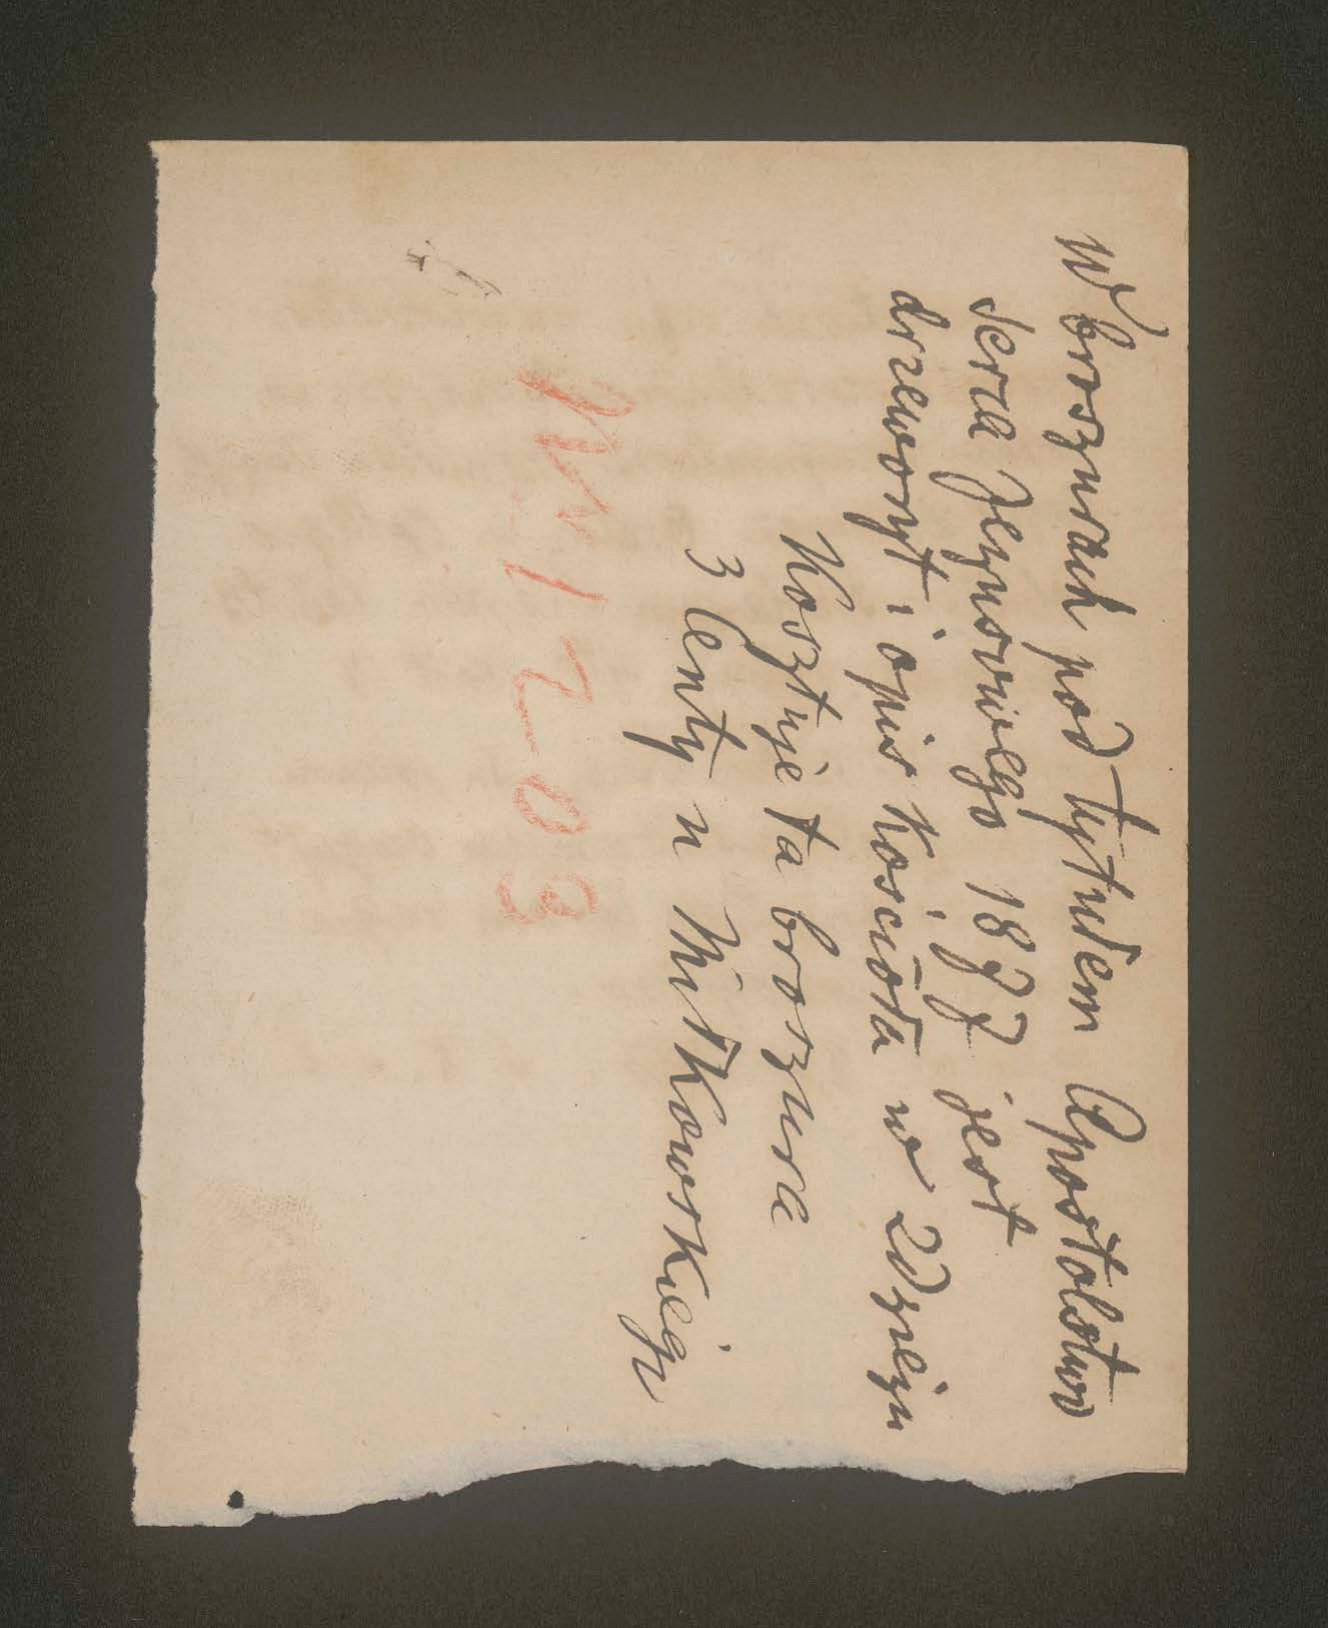 W broszurach pod tytułem Apostolstwo
serca Jezusowego 1877 jest
drzeworyt i opis Kościoła w Zdzieżu
Kosztuje ta broszura
3 Centy u Miłkowskiego
Nr 1203